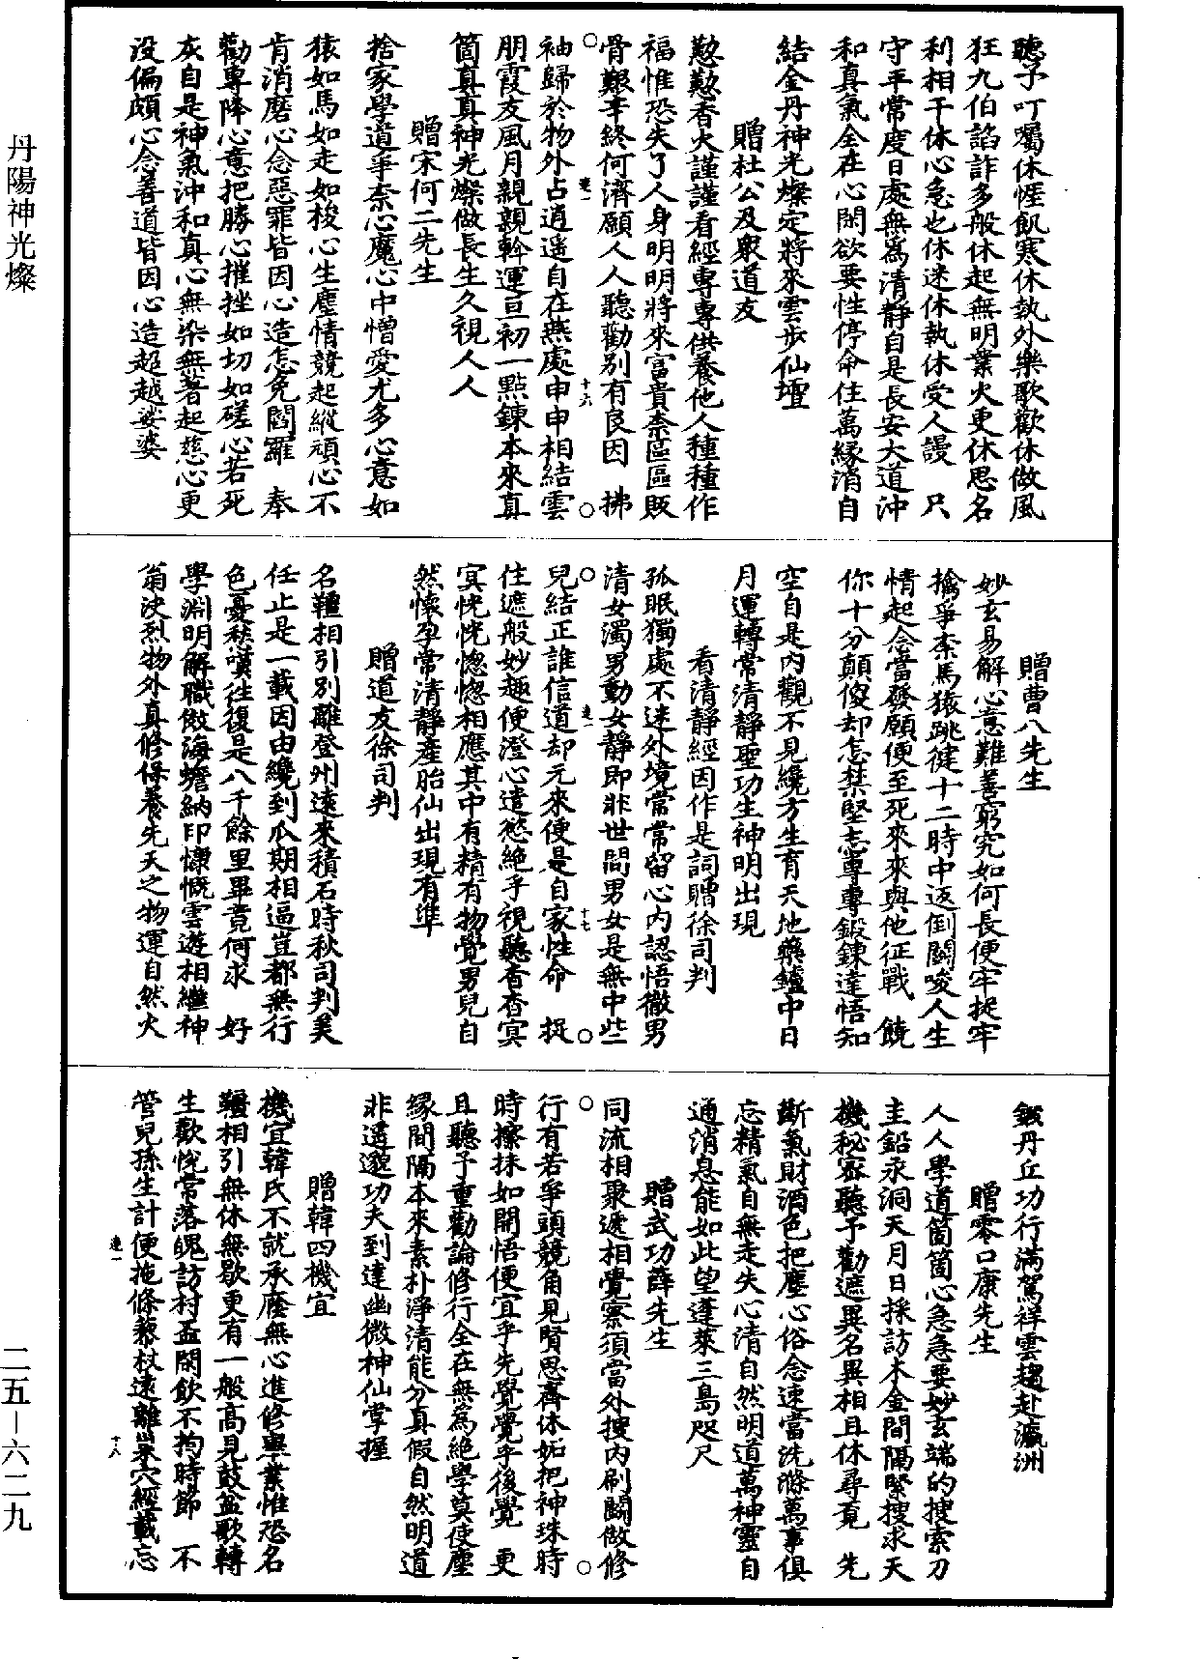 聽予叮囑休慳飢寒休執外樂歌歡休做風
狂九伯諂詐多般休起無明業火更休思名
利相干休心急也休迷休執休受人謾　只
守平常度日處無為清靜自是長安大道沖
和真氣全在心閑欲要性停命住萬緣消自
結金丹神光燦定將來雲步仙壇
贈杜公及衆道友
懃懃香火謹謹看經專專供養他人種種作
福惟恐失了人身明明將來富貴柰區區販
骨艱辛終何濟願人人聽勸別有良因　拂
袖歸於物外占逍遥自在燕處申申相結雲
朋霞友風月親親斡運亘初一點鍊本來真
箇真真神光燦做長生久視人人
贈宋何二先生
捨家學道爭奈心魔心中憎愛尤多心意如
猿如馬如走如梭心生塵情競起縱頑心不
肯消磨心念惡罪皆因心造怎免閻羅　奉
勸專降心意把勝心摧挫如切如磋心若死
灰自是神氣沖和真心無染無著起慈心更
没偏頗心念善道皆因心造超越娑婆
贈曹八先生
妙玄易解心意難善窮究如何長便牢捉牢
擒爭柰馬猿跳健十二時中返倒鬭唆人生
情起念當發願便至死來來與他征戰　饒
你十分顛傻却怎禁堅志專專鍛鍊達悟知
空自是内觀不見纔方生育天地藥鑪中日
月運轉常清靜聖功生神明出現
看清靜經因作是詞贈徐司判
孤眠獨處不迷外境常常留心内認悟徹男
清女濁男動女靜即非世間男女是無中些
兒結正誰信道却元來便是自家性命　捉
住遮般妙趣便澄心遣慾絶乎視聽杳杳冥
冥恍恍惚惚相應其中有精有物覺男兒自
然懷孕常清靜產胎仙出現有準
贈道友徐司判
名韁相引別離登州遠來積石時秋司判美
任止是一載因由纔到瓜期相逼豈都無行
色憂愁嘆往復是八千餘里畢竟何求　好
學淵明解職倣海蟾納印慷慨雲遊相繼神
翁決烈物外真修保養先天之物運自然火
鍛丹丘功行滿駕祥雲趨赴瀛洲
贈零口康先生
人人學道箇箇心急急要妙玄端的搜索刀
圭鉛汞洞天月日採訪木金間隔緊搜求天
機秘密聽予勸遮異名異相且休尋覓　先
斷氣財酒色把塵心俗念速當洗滌萬事俱
忘精氣自無走失心清自然明道萬神靈自
通消息能如此望蓬萊三島咫尺
贈武功薛先生
同流相聚遞相覺察須當外搜内刷鬭做修
行有若爭頭競角見賢思齊休妬把神珠時
時擦抹如開悟便宜乎先覺覺乎後覺　更
且聽予重勸論修行全在無為絶學莫使塵
緣間隔本來素朴淨清能分真假自然明道
非遥邈功夫到達幽微神仙掌握
贈韓四機宜
機宜韓氏不就承䕃無心進修舉業惟恐名
韁相引無休無歇更有一般高見鼓盆歌轉
生歡悅常落魄訪村孟閑飲不拘時節　不
管兒孫生計便拖條藜杖遠離巢穴經載忘
丹陽神光燦
二五－六二九